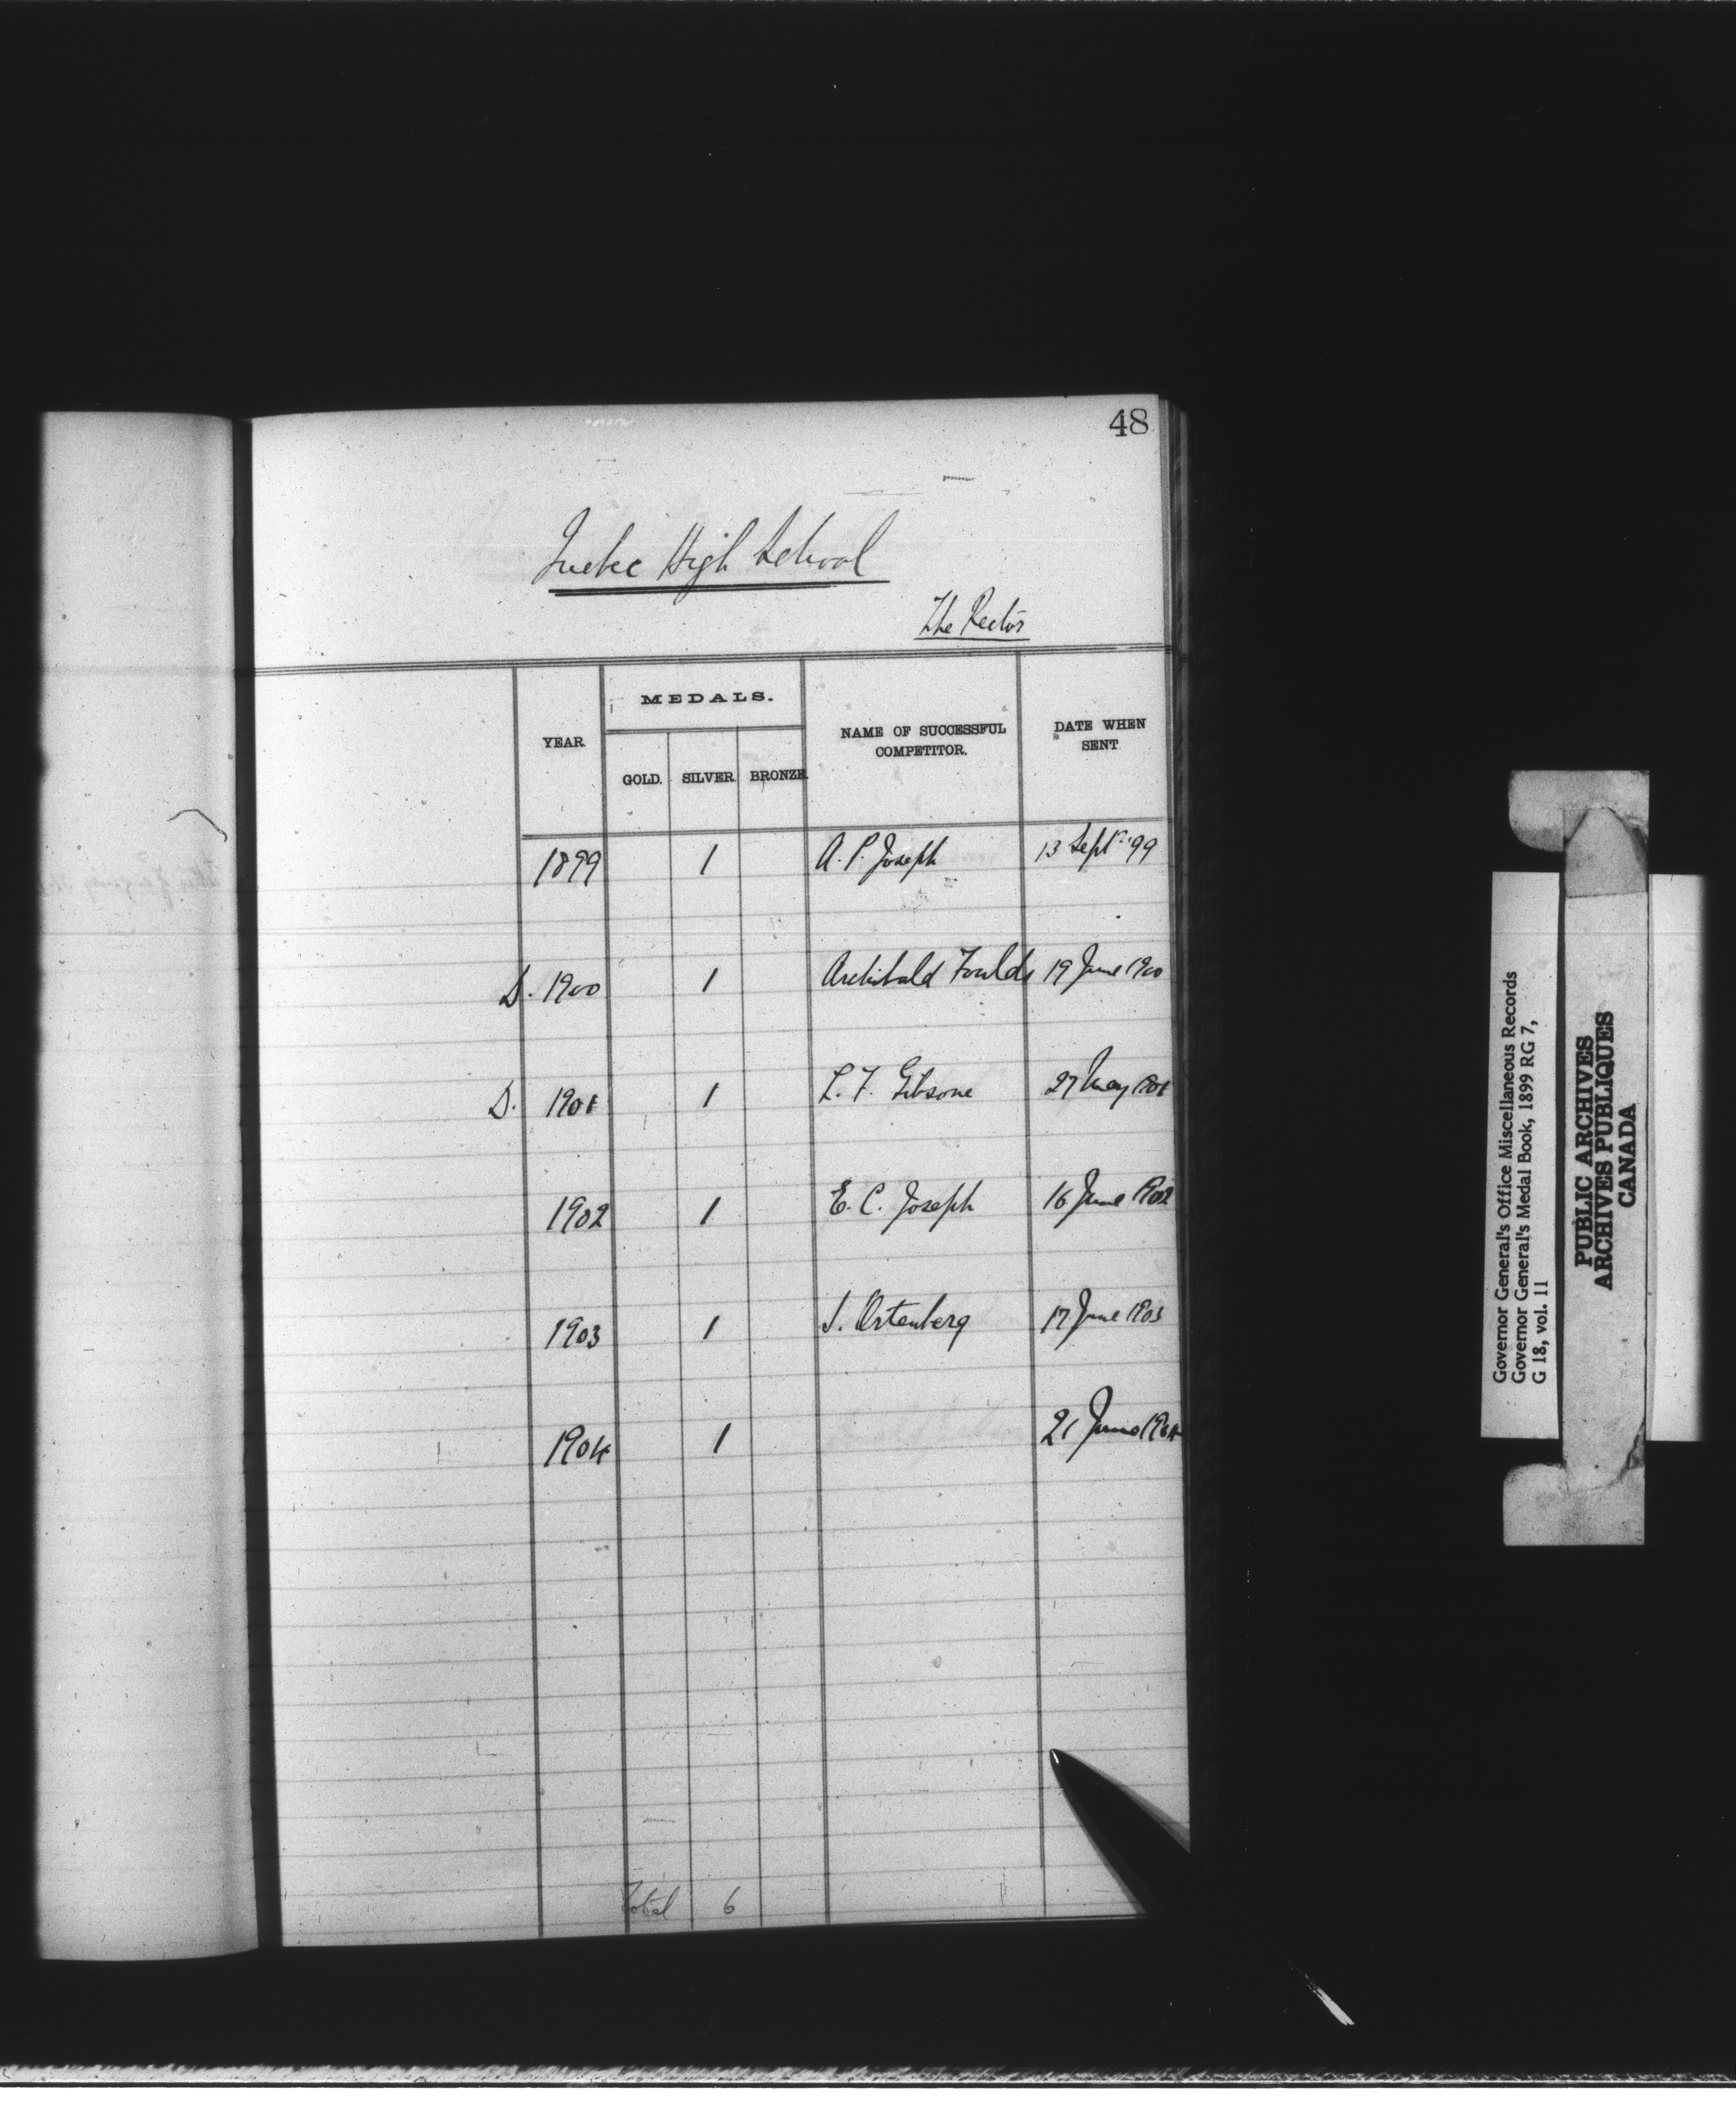 48
Quebec High School
The Rector
MEDALS.
YEAR. GOLD. SILVER. BRONZE. NAME OF SUCCESSFUL COMPETITOR. DATE WHEN SENT
1899 1 A. P. Joseph 13 Sept. '99
D. 1900 1 Archibald Foulds 19 June 1900
D. 1901 1 L. F. Gibsone 27 May 1901
1902 1 E. C. Joseph 16 June 1902
1903 1 J. Ortenberg 17 June 1903
1904 1 21 June 1904
Total 6
Governor General's Office Miscellaneous Records
Governor General's Medal Book, 1899 RG 7,
G 18, vol. 11
PUBLIC ARCHIVES
ARCHIVES PUBLIQUES
CANADA